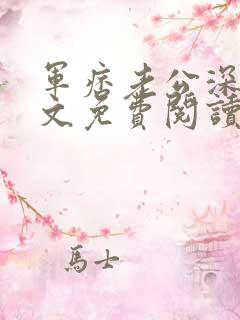 軍痞老公深
文免費閱讀
馬士